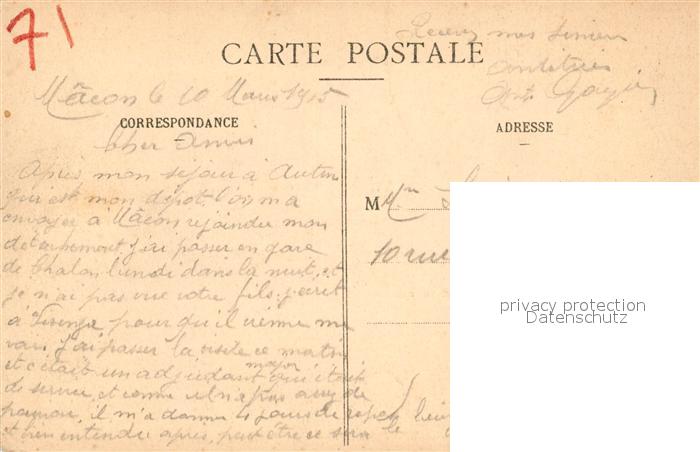 71
Recevez mes
CARTE POSTALE
Mâcon le 10 Mars 1915
CORRESPONDANCE
ADRESSE
Cher Amis
Après mon sejour à Autun
qui est mon dépot. l'on m'a
envoyer à Mâcon rejoindre mon
détachement. J'ai passer en gare
de Chalon lundi dans la nuit, et
je n'ai pas vue votre fils. j'ecrit
à pour qu'il vienne me
voir. J'ai passer la visite ce matin
et c'était un adjudant major qui était
de service, et comme il n'a pas
il m'a donner 4 jours de repos
et bien entendu après, peut être ce sera
le
M
10 rue
privacy protection
Datenschutz